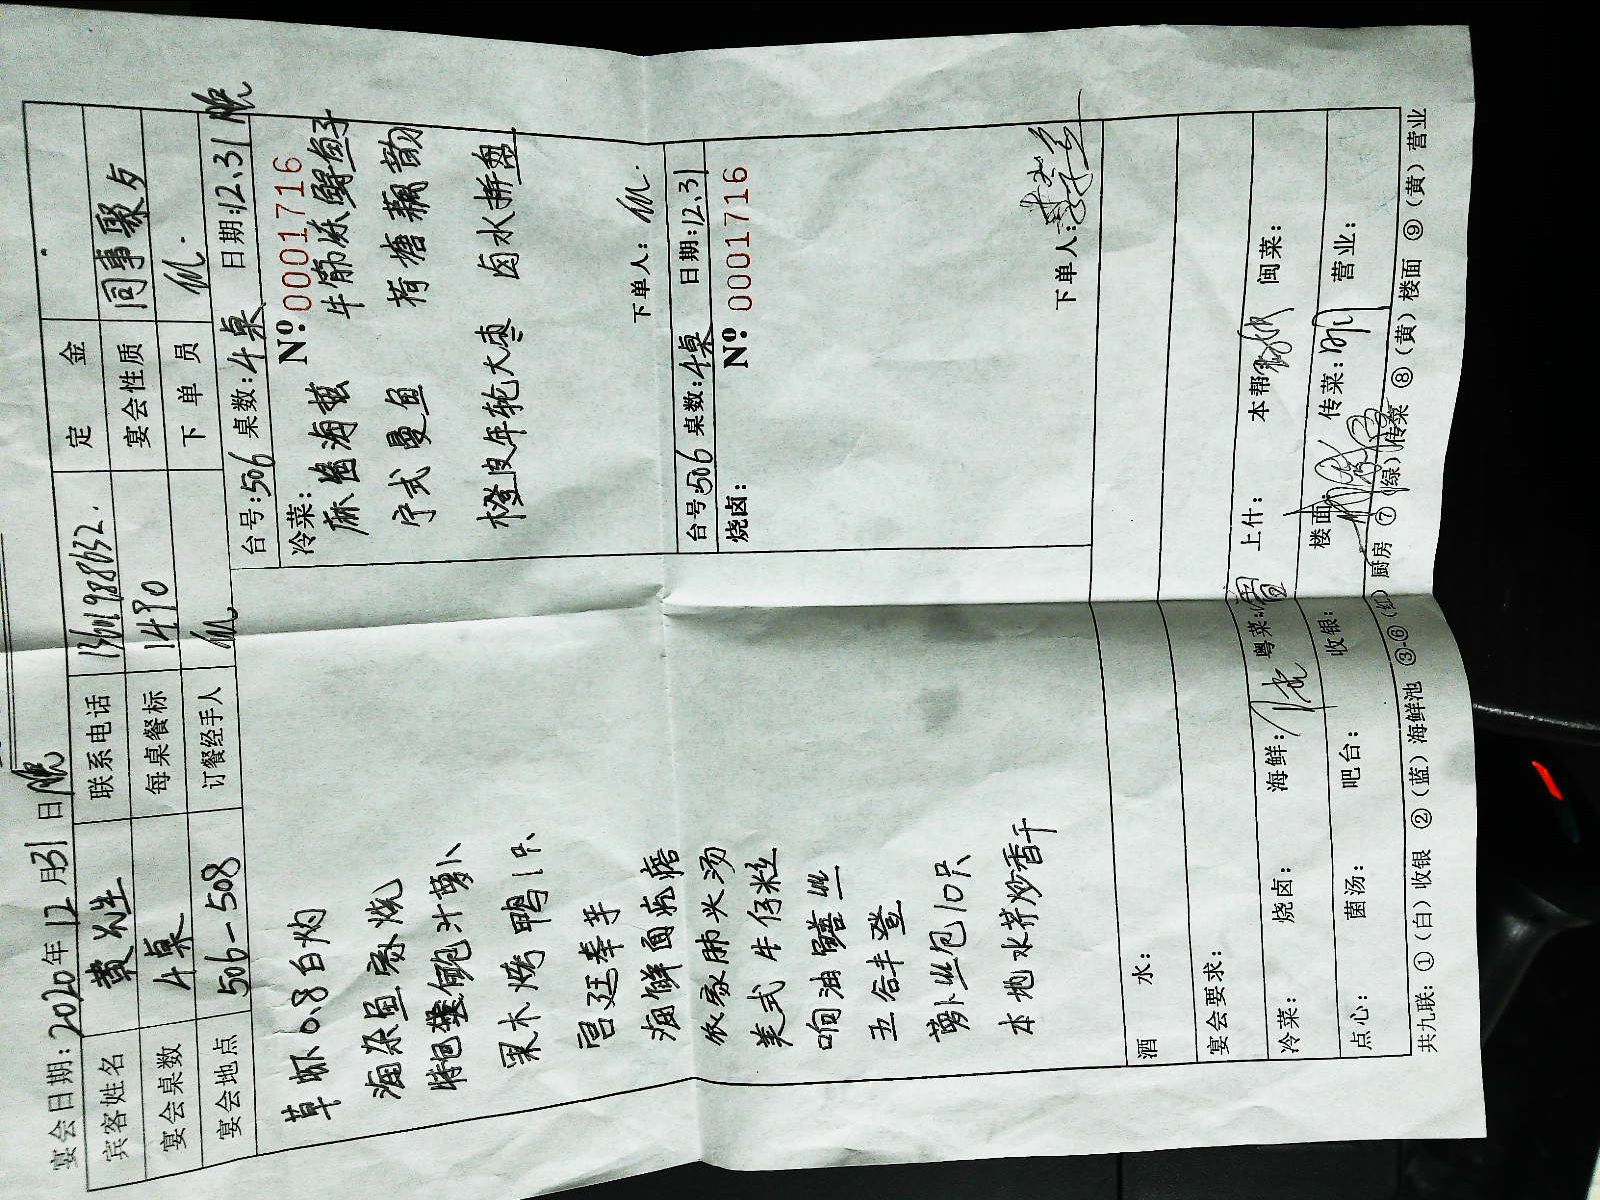 宴会日期:2020年12月31日晚
宾客姓名 黄先生 联系电话 定金
宴会桌数 4桌 每桌餐标 1490 宴会性质 同事聚夕
宴会地点 506-508 订餐经手人 下单员
台号:506 桌数:4桌 日期:12.31晚
冷菜: Nº:0001716
麻酱海蜇 牛筋冻鲟鱼子
宁式曼鱼 荷塘藕韵
橙皮年轮大枣 卤水拼盘
下单人:
台号:506 桌数:4桌 日期:12.31
烧卤: Nº:0001716
下单人:
草虾0.8白灼
海杂鱼家烧
鲍汁萝卜
果木烤鸭1只
宫廷奉芋
海鲜面疙瘩
农家肺头汤
美式牛仔粒
响油鳝丝
五谷丰登
萝卜丝包10只
本地水芹炒香干
酒水:
宴会要求:
冷菜: 烧卤: 海鲜: 粤菜: 上什: 本帮: 闽菜:
点心: 菌汤: 吧台: 收银: 楼面: 传菜: 营业:
共九联:①(白)收银 ②(蓝)海鲜池 ③-⑥(红)厨房 ⑦(绿)传菜 ⑧(黄)楼面 ⑨(黄)营业